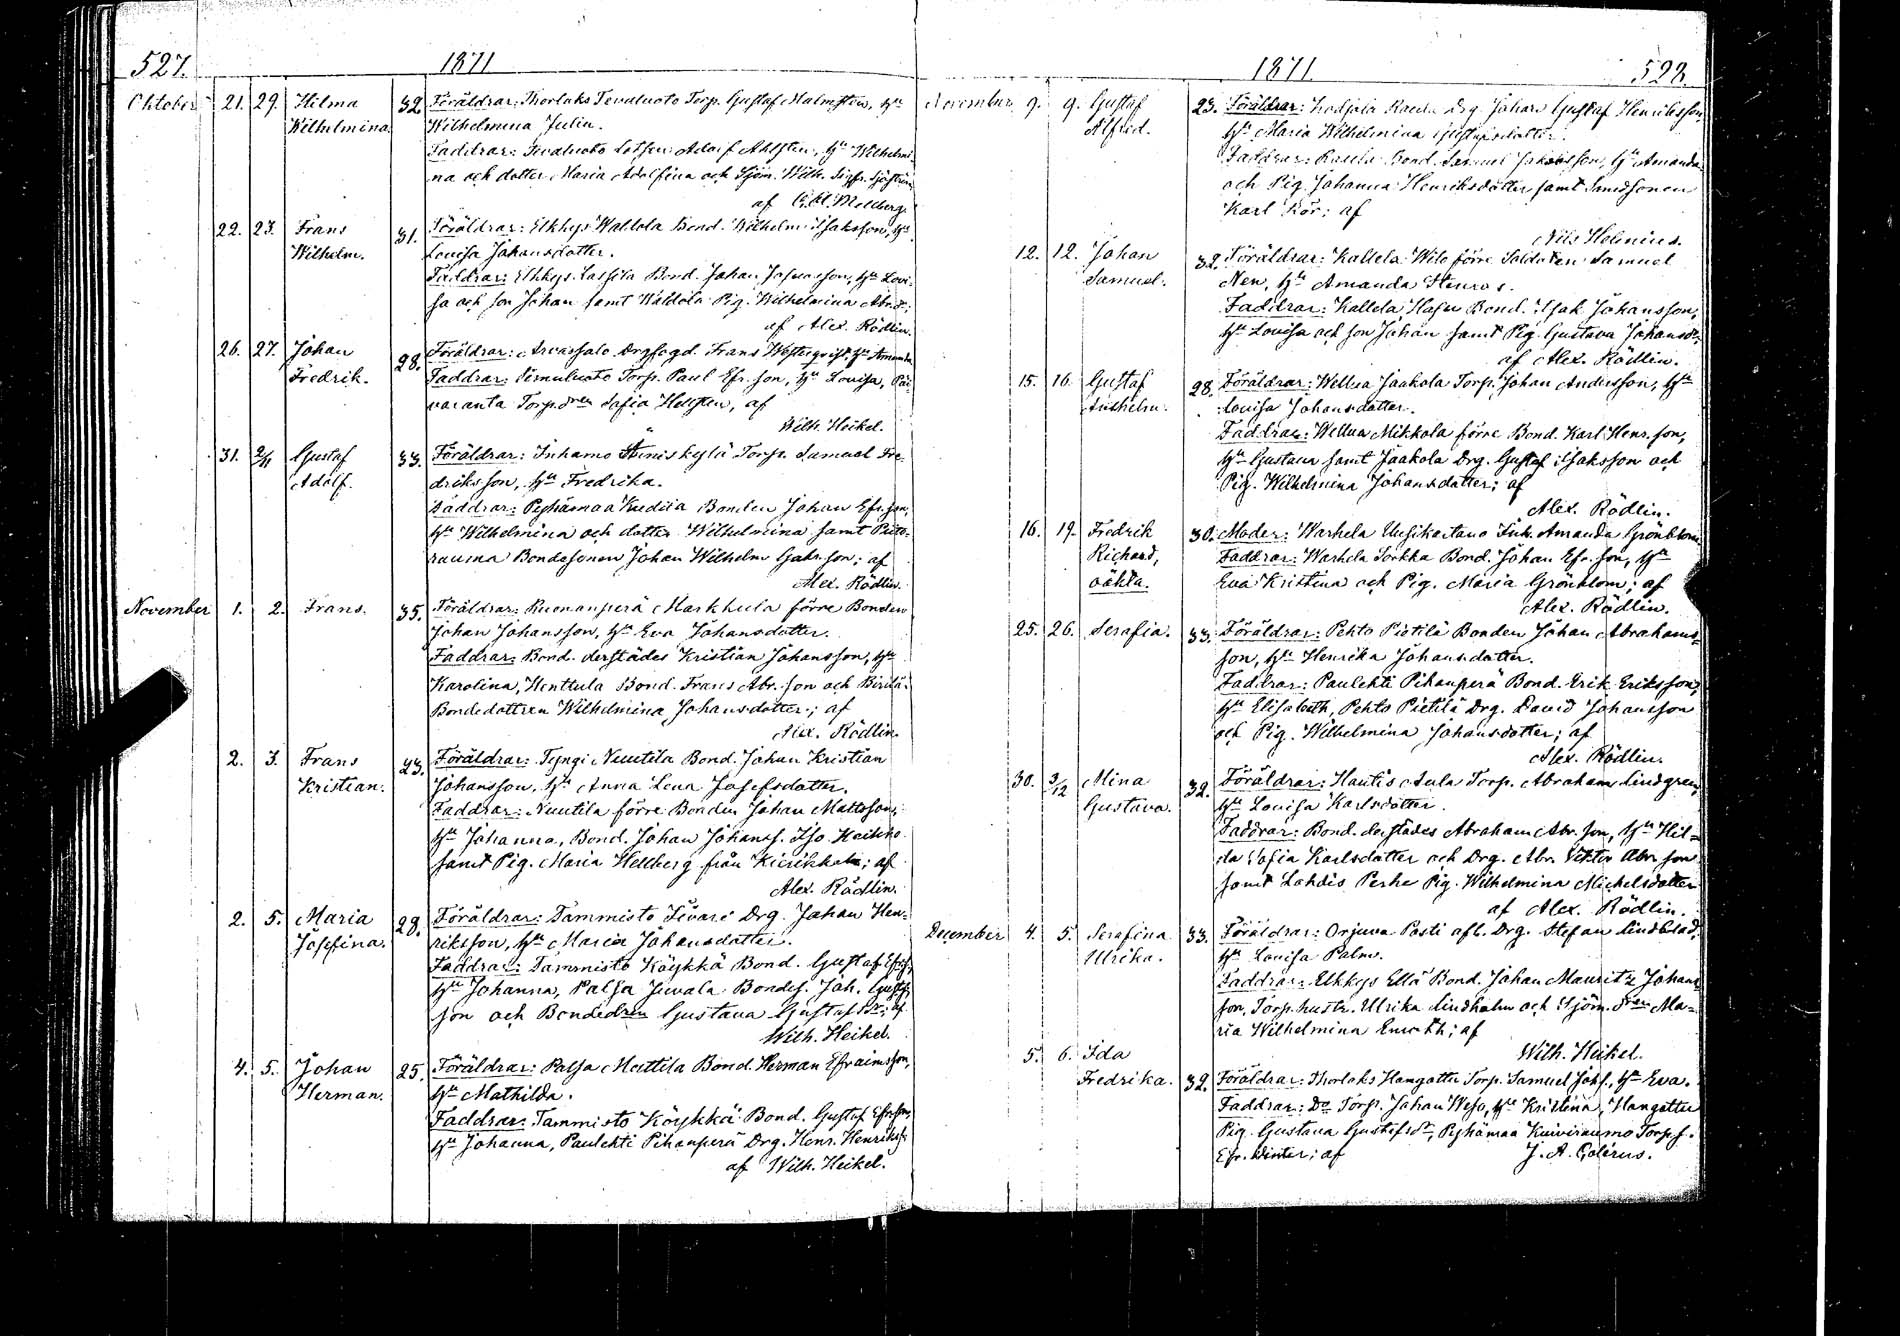 527. 1871
Oktober 21. 29. Hilma 32. Föräldrar: Thorlaks Tevaluoto Torp. Gustaf Malmsten, hu
Wilhelmina. Wilhelmina Julin.
Faddrar: Tevaluoto Lotsen Adolf Ahlsten, hu Wilhelmi-
na och dotter Maria Adolfina och Sjöm. Wilh. Sjöström
af Mellberg.
22. 23. Frans 31. Föräldrar: Elkkys Waltola Bond. Wilhelm Isaksson, hu
Wilhelm. Lovisa Johansdotter.
Faddrar: Elkkys Lassila Bond. Johan hu Lovi-
sa och son Johan samt Waldola Pig. Wilhelmina Abrd.;
af Alex. Rödlin.
26. 27. Johan 28. Föräldrar: Arvassalo Drgfogd. Frans Westerqvist, hu Amanda
Fredrik. Faddrar: Torp. Paul Efr.son, hu Lovisa,
varanta Torp.dren Safia Hellsten, af
Wilh. Heikel.
31. 2/11 Gustaf 33. Föräldrar: Inhamo Äyniskylä Torp. Samuel Fre-
Adolf. driksson, hu Fredrika.
Faddrar: Pyhämaa Kuedila Bonden Johan Efr.son,
hu Wilhelmina och dotter Wilhelmina samt Pito-
rauma Bondesonen Johan Wilhelm Gabr.son; af
Alex. Rödlin.
November 1. 2. Frans. 35. Föräldrar: Ruonanperä Markkula förre Bonden
Johan Johansson, hu Eva Johansdotter.
Faddrar: Bond. derstädes Kristian Johansson, hu
Karolina, Henttula Bond. Frans Abr.son och Birilä
Bondedottren Wilhelmina Johansdotter; af
Alex. Rödlin.
2. 3. Frans 23. Föräldrar: Tyngi Nuutila Bond. Johan Kristian
Kristian. Johansson, hu Anna Lena Josefsdotter.
Faddrar: Nuutila förre Bonden Johan Mattsson,
hu Johanna, Bond. Johan Johanss. Iso Heikko
samt Pig. Maria Hellberg från Kierikkala; af
Alex. Rödlin.
2. 5. Maria 28. Föräldrar: Tammisto Iivari Drg. Johan Hen-
Josefina. riksson, hu Maria Johansdotter.
Faddrar: Tammisto Köykkä Bond. Gustaf Efrs.,
hu Johanna, Palsa Juvala Bondes. Joh. Gustafs
son och Bondedren Gustava Gustafsdr; af
Wilh. Heikel.
4. 5. Johan 25. Föräldrar: Palsa Mattila Bond. Herman Efraimsson,
Herman. hu Mathilda.
Faddrar: Tammisto Köykkä Bond. Gustaf Efr.son,
hu Johanna, Paulehti Pihanperä Drg. Henr. Henrikss.
af Wilh. Heikel.
1871 528.
November 9. 9. Gustaf 23. Föräldrar: Raula Drg. Johan Gustaf Henriksson,
Alfred. hu Maria Wilhelmina Gustafsdotter.
Faddrar: Raula Bond. Samuel Jakobsson, hu Amanda
och Pig. Johanna Henriksdotter samt Smedsonen
Karl Rör; af
Nils Helenius.
12. 12. Johan 32. Föräldrar: Kallela Wilo förre Soldaten Samuel
Samuel. Nen, hu Amanda Henrs.
Faddrar: Kallela Hasu Bond. Isak Johansson,
hu Lovisa och son Johan samt Pig. Gustava Johansdr.
af Alex. Rödlin.
15. 16. Gustaf 28. Föräldrar: Wellua Jaakola Torp. Johan Andersson, hu
Anshelm. Lovisa Johansdotter.
Faddrar: Wellua Mikkola förre Bond. Karl Henr.son,
hu Gustava samt Jaakola Drg. Gustaf Isaksson och
Pig. Wilhelmina Johansdotter; af
Alex. Rödlin.
16. 19. Fredrik 30. Moder: Warhela Uusikartano Inh. Amanda Grönblom.
Richard, Faddrar: Warhela Sorkka Bond. Johan Efr.son, hu
oäkta. Eva Kristina och Pig. Maria Grönblom; af
Alex. Rödlin.
25. 26. Serafia. 33. Föräldrar: Pehto Pietilä Bonden Johan Abrahams-
son, hu Henrika Johansdotter.
Faddrar: Paulehti Pihanperä Bond. Erik Eriksson,
hu Elisabeth, Pehto Pietilä Drg. David Johansson
och Pig. Wilhelmina Johansdotter; af
Alex. Rödlin.
30. 3/12 Mina 32. Föräldrar: Hautis Aula Torp. Abraham Lindgren,
Gustava. hu Lovisa Karlsdotter.
Faddrar: Bond. derstädes Abraham Abr.son, hu Hil-
da Sofia Karlsdotter och Drg. Abr. Viktor Abr.son
samt Lahdis Perhe Pig. Wilhelmina Michelsdotter
af Alex. Rödlin.
December 4. 5. Serafina 33. Föräldrar: Orjuva Posti afl. Drg. Stefan Lindblad,
Ulrika. hu Lovisa Palm.
Faddrar: Elkkys Ellä Bond. Johan Mauritz Johans-
son, Torp.hustr. Ulrika Lindholm och Sjöm.dren Ma-
ria Wilhelmina Enroth; af
Wilh. Heikel.
5. 6. Ida
Fredrika. 32. Föräldrar: Thorlaks Hangattu Torp. Samuel Johs., hu Eva.
Faddrar: Do Torp. Johan Weso, hu Kristina, Hangattu
Pig. Gustava Gustafsdr, Pyhämaa Kuiviraumo Torps.
Efr. Winter; af J. A. Colérus.